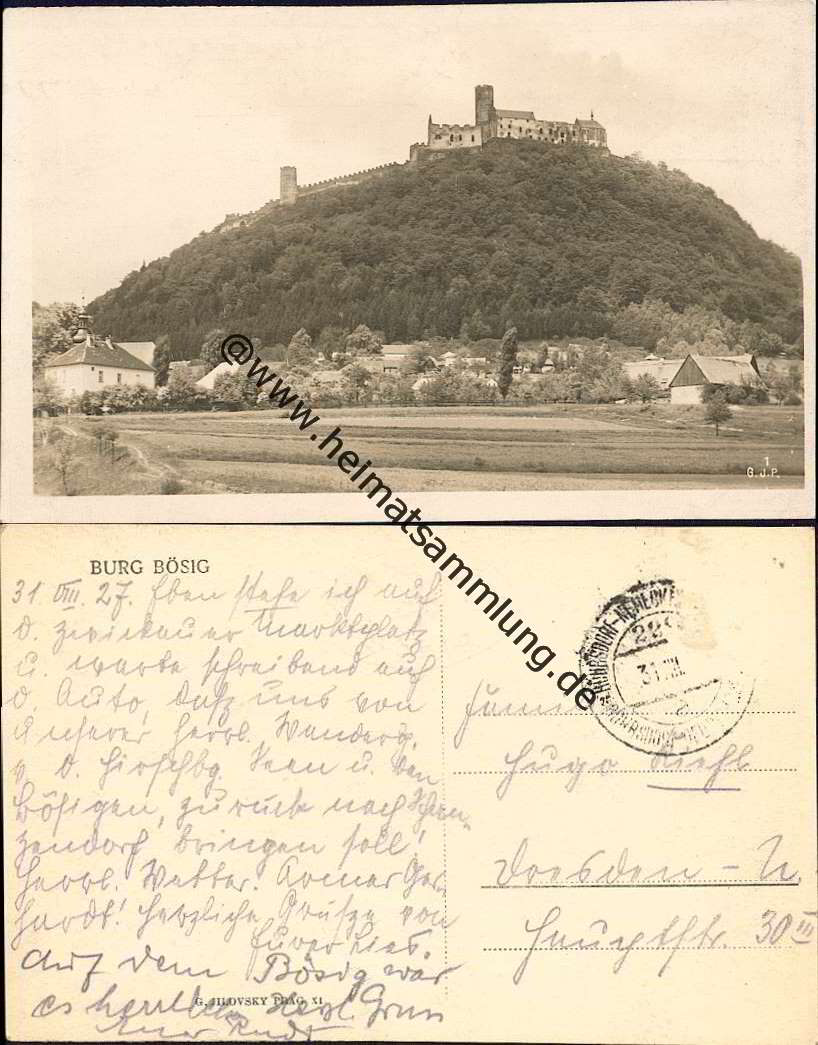 1
G.J.P.
@www.heimatsammlung.de
BURG BÖSIG
31. VIII. 27. Eben stehe ich auf
d. Zwickauer Marktplatz
u. warte schreibend auf
d. Auto, daß uns von
unserer herrl. Wanderg.
v. d. Hirschbg. Seen u. den
Bösigen, zurück nach
zendorf bringen soll!
Herrl. Wetter. Armer Ger-
hardt! Herzliche Grüße von
Eurer Lies.
Auf dem Bösig war
es herrlich Herzl.
G. JILOVSKY PRAG XI
31.VIII
Hugo Riehl
Dresden - N.
Hauptstr. 30 III